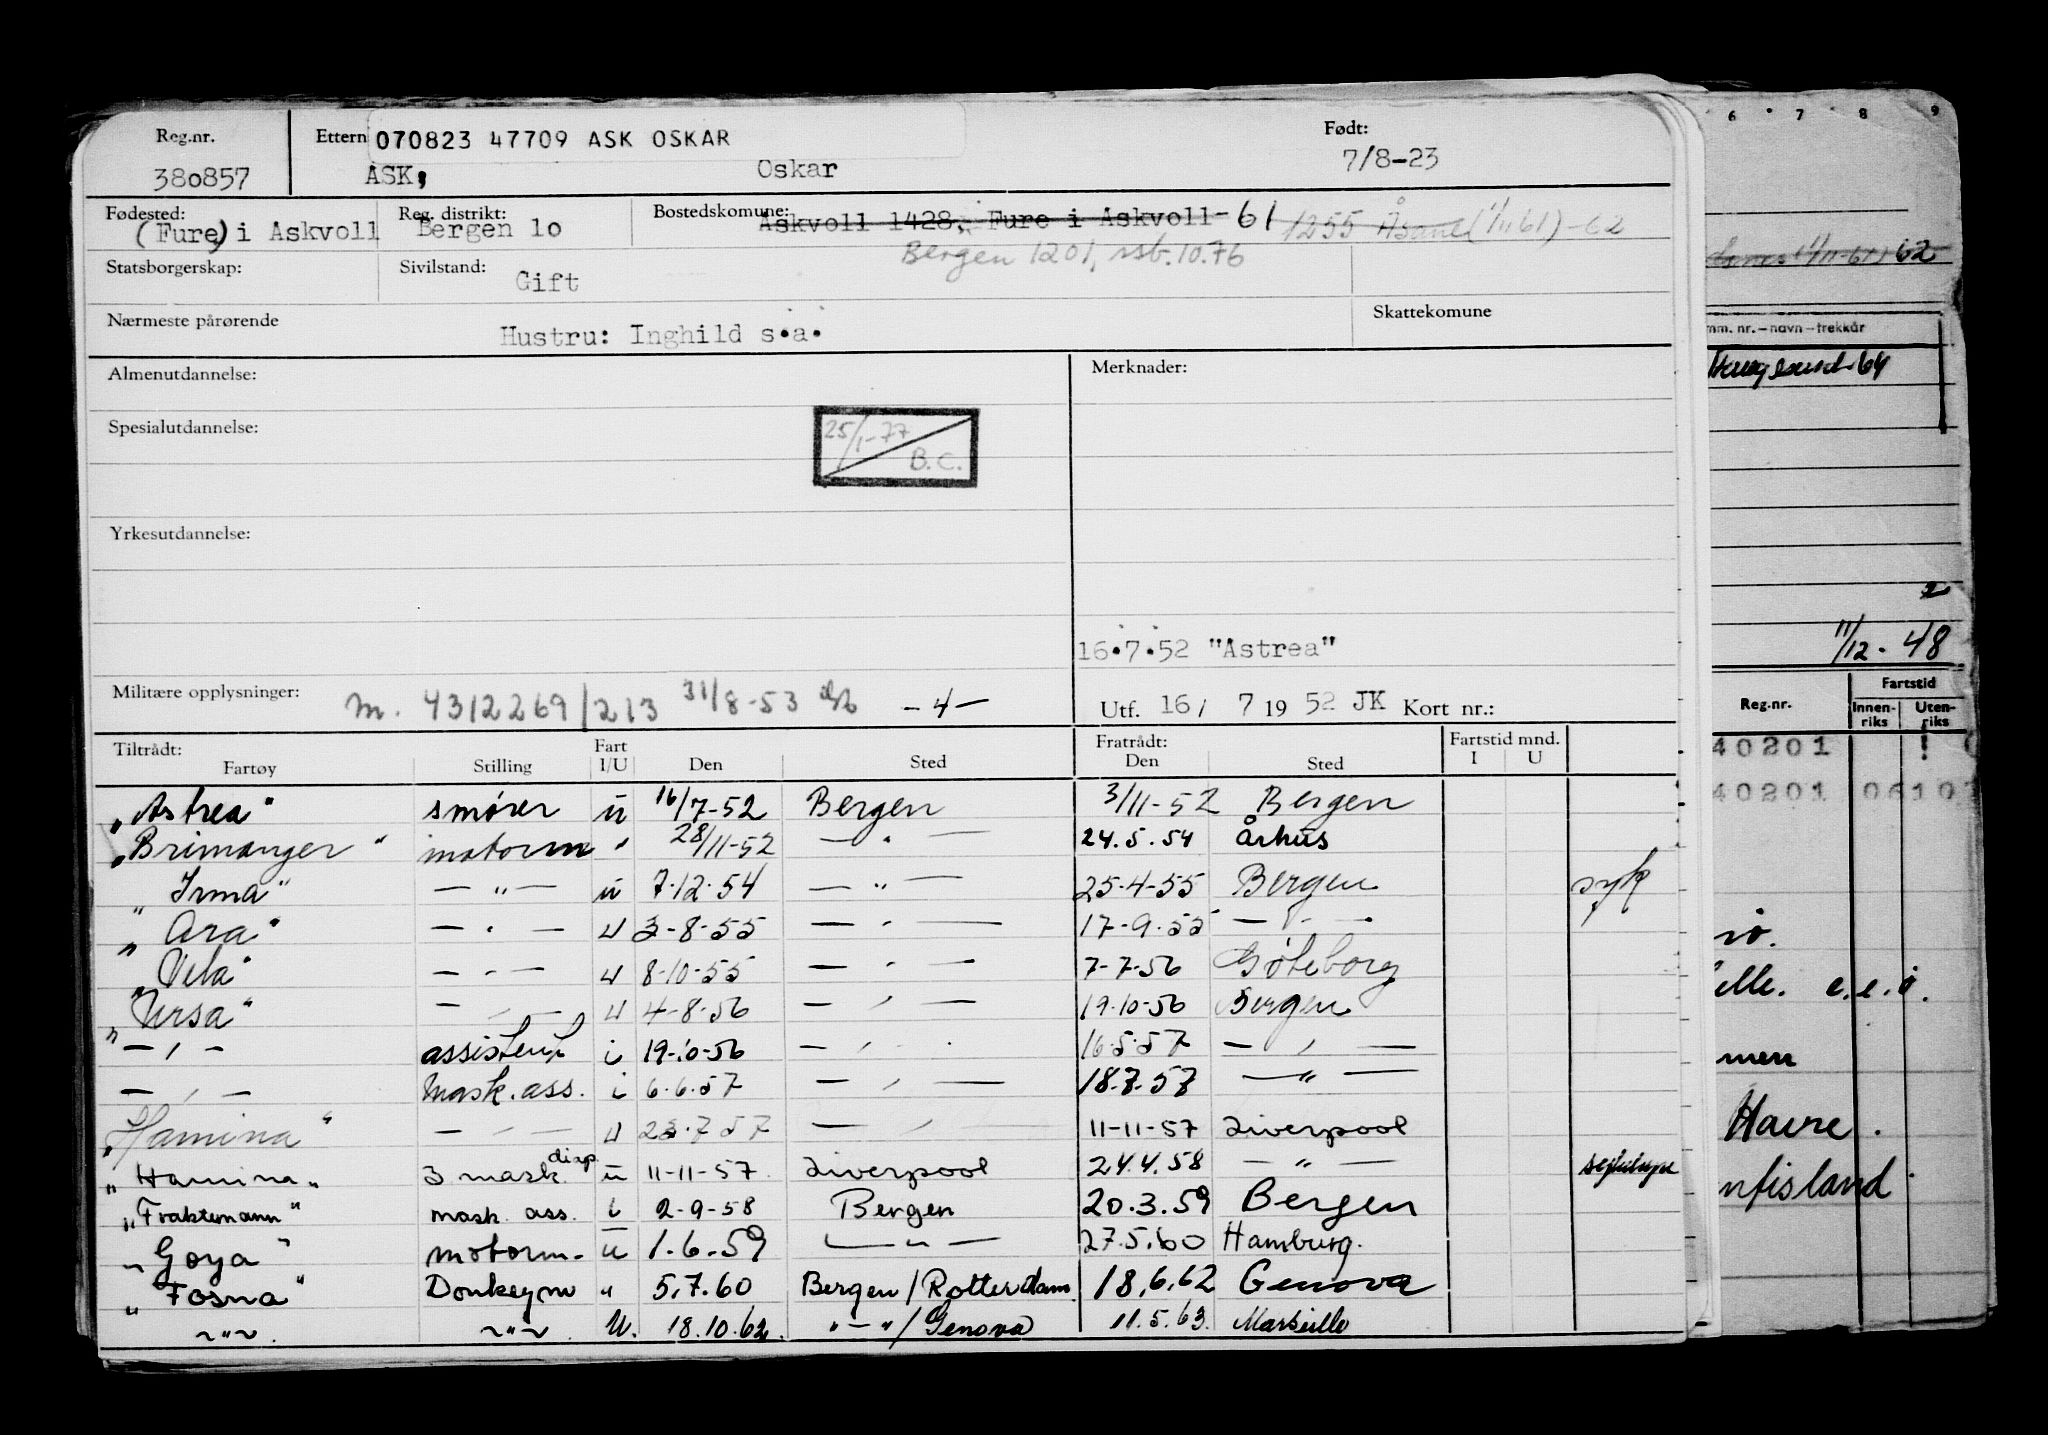 Reg.nr. Ettern 070823 47709 ASK OSKAR Født:
380857 ASK, Oskar 7/8-23
Fødested: Reg. distrikt: Bostedskomune: Askvoll 1428, Fure i Askvoll-61 1255 Åsane (1/11 61)-62
(Fure) i Askvoll Bergen 10
Bergen 1201, rsb. 10.76
Statsborgerskap: Sivilstand: Gift
Nærmeste pårørende Skattekomune
Hustru: Inghild s.a.
Almenutdannelse: Merknader:
Spesialutdannelse: 25/1-77 B.C.
Yrkesutdannelse:
16.7.52 "Astrea"
Militære opplysninger: m. 4312269/213 31/8-53 -4- Utf. 16/ 7 19 52 JK Kort nr.:
Tiltrådt: Fart Fratrådt: Fartstid mnd.
Fartøy Stilling I/U Den Sted Den Sted I U
"Astrea" smører u 16/7-52 Bergen 3/11-52 Bergen
"Brimanger" motorm " 28/11-52 — " — 24.5.54 Århus
"Irma" — " — u 7.12.54 — " — 25-4-55 Bergen syk
"Ara" — " — u 3-8-55 — " — 17-9-55 — " —
"Vela" — " — u 8-10-55 — " — 7-7-56 Göteborg
"Ursa" — " — u 4-8-56 — " — 19.10-56 Bergen
— " — assistent i 19-10-56 — " — 16.5.57 — " —
— " — Mask. ass. i 6.6.57 — " — 18.7.57 — " —
"Hamina" — " — u 23.7.57 — " — 11-11-57 Liverpool
"Hamina" 3 mask disp. u 11-11-57 Liverpool 24.4.58 — " —
"Fraktemann" mask. ass. i 2-9-58 Bergen 20.3.59 Bergen
"Goya" motorm. u 1.6.59 — " — 27.5.60 Hamburg.
"Fosna" Donkeym " 5.7.60 Bergen/Rotterdam 18.6.62 Genova
— " — — " — U. 18.10.62. " — "/Genova 11.5.63. Marseille
6 7 8 9
11/11-61) 62
mm. nr.–navn–trekkår
Haugesund-64
2
11/12-48
Reg.nr. Fartstid
Innen-riks Uten-riks
40201
40201 0610
elle. e.e.o.
men
Havre.
nfisland